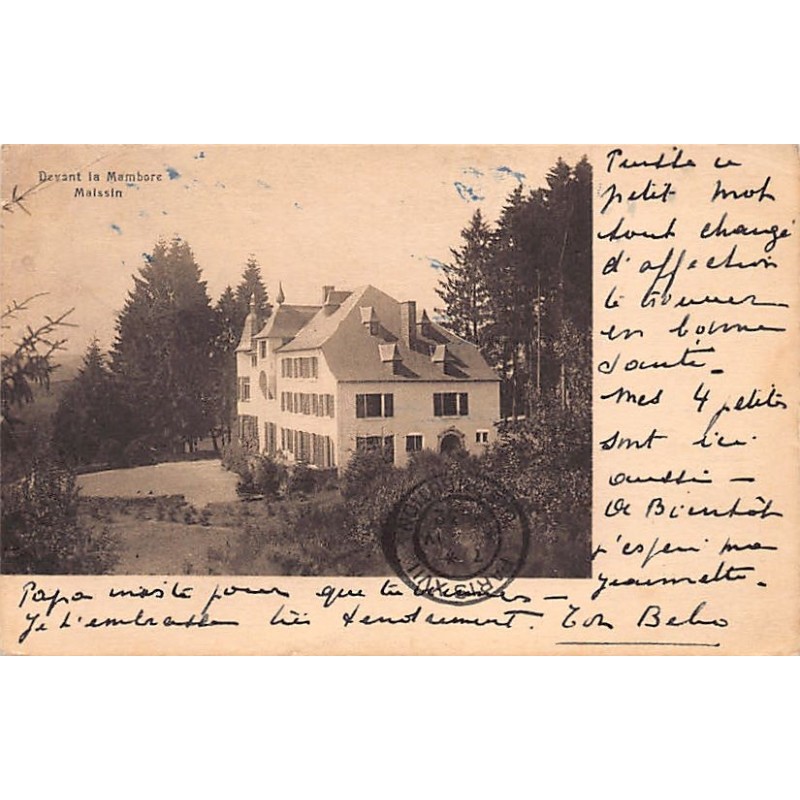 Devant la Mambore
Maissin
Puisse ce
petit mot
tout chargé
d'affection
te trouver
en bonne
santé.
Mes 4 petits
sont ici
aussi —
A Bientôt
j'espère ma
Jeannette.
Papa insiste pour que tu viennes —
Je t'embrasse très tendrement. Ton Bebo
PARIS XVII